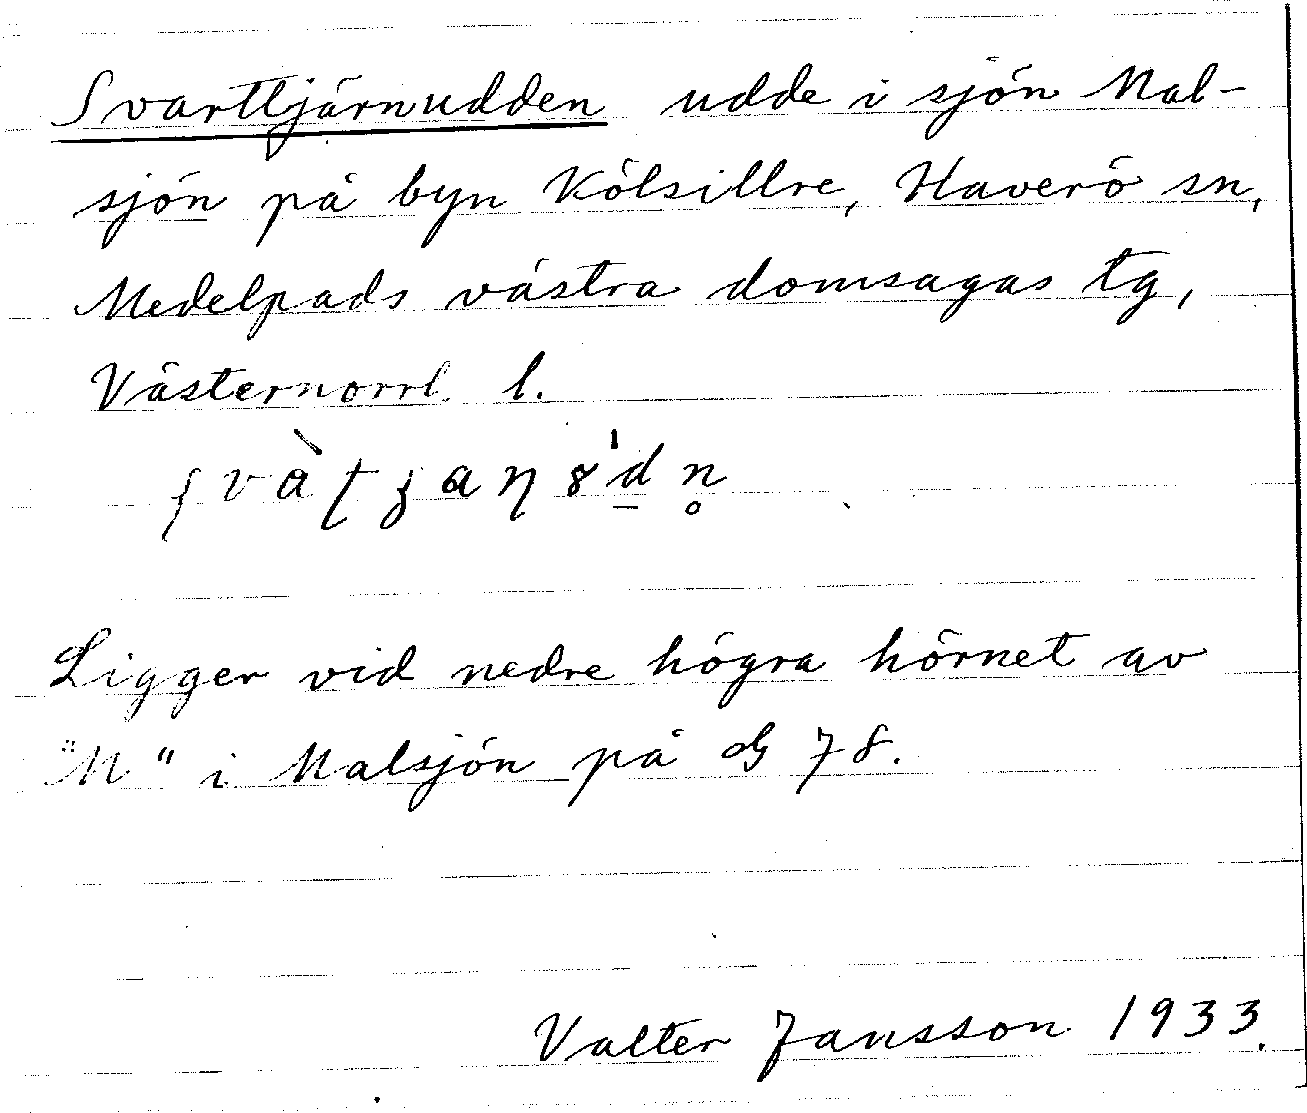 Svarttjärnudden udde i sjön Mal-
sjön på byn Kölsillre, Haverö sn,
Medelpads västra domsagas tg,
Västernorrl. l.
Ligger vid nedre högra hörnet av
"M" i Malsjön på 78.
Valter Jansson 1933.